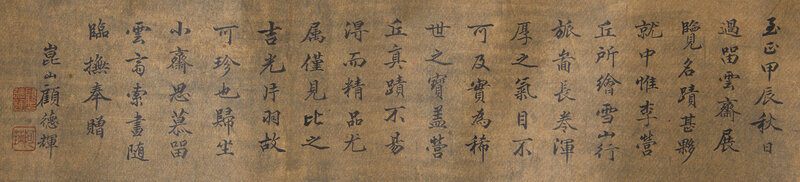 至正甲辰秋日
過留雲齋展
覽名蹟甚夥
就中惟李營
丘所繪雪山行
旅啚長卷渾
厚之氣目不
可及實為稀
世之寶蓋營
丘真蹟不易
得而精品尤
属僅見比之
吉光片羽故
可珍也歸坐
小齋思慕留
雲高索畫隨
臨撫奉贈
崑山顧德輝